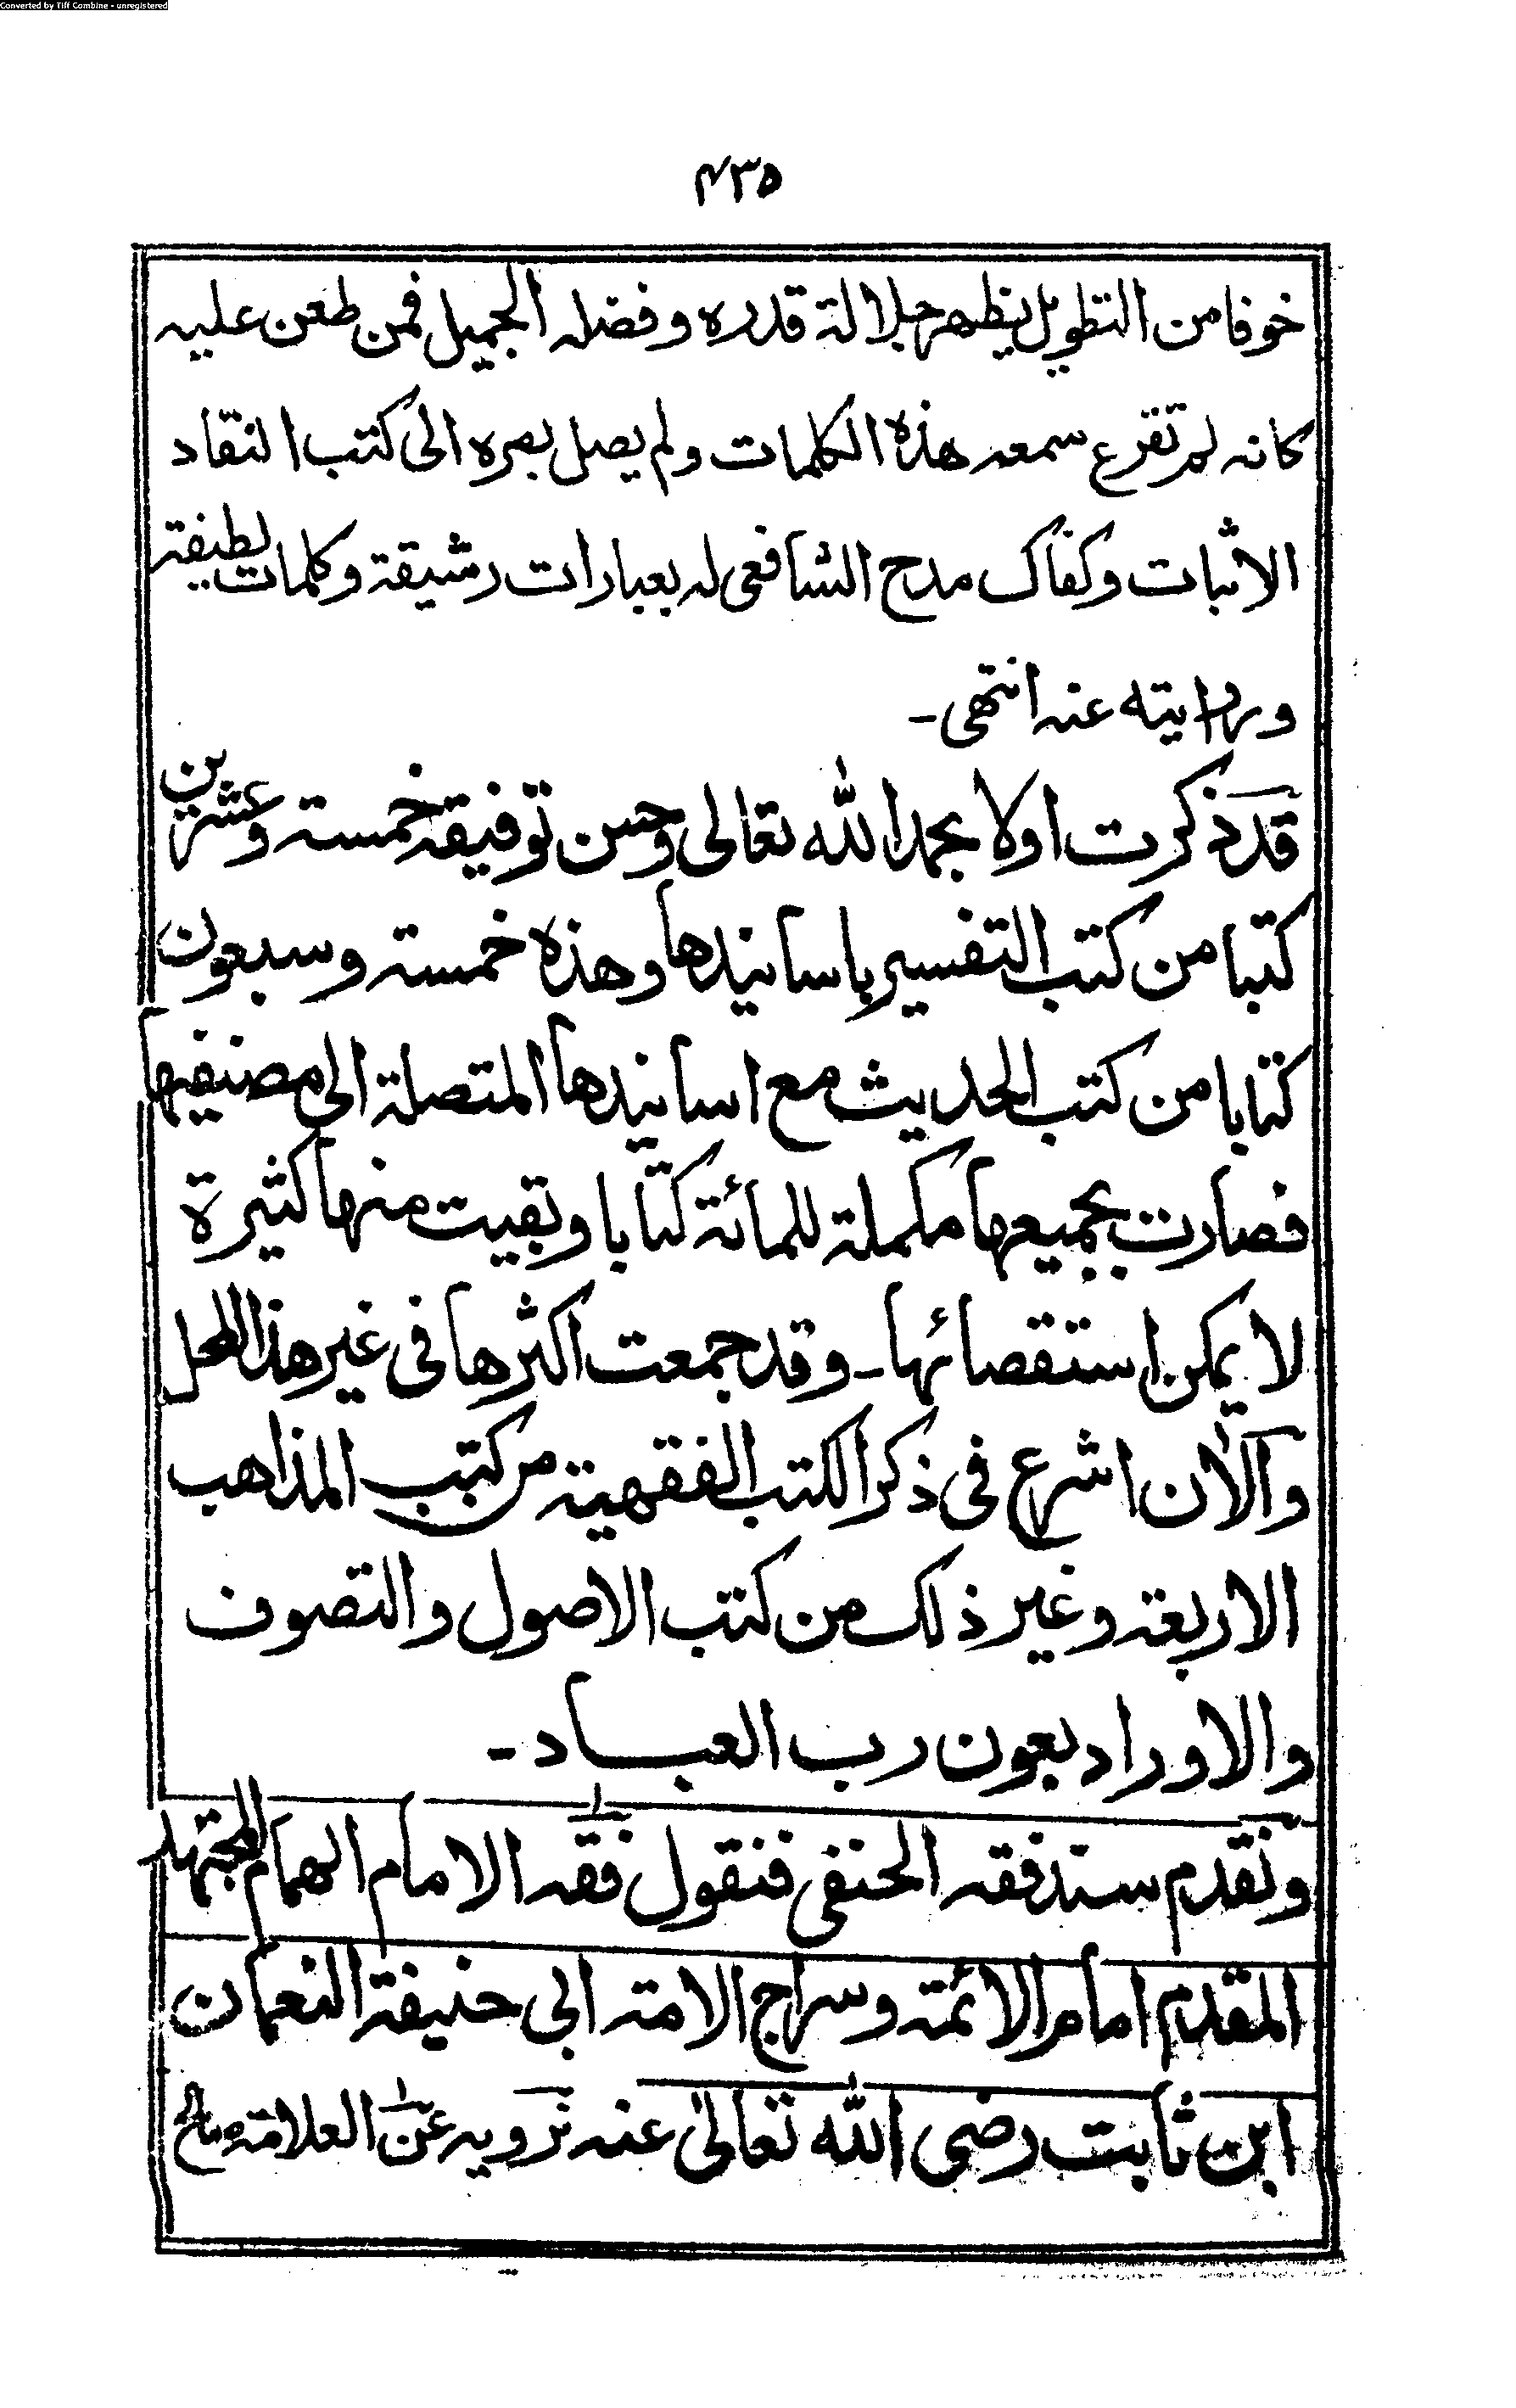 Converted by Tiff Combine - unregistered
۴۳۵
خوفا من التطويل يظهر جلالة قدره وفضله الجميل فمن طعن عليه
كانه لم تقرع سمعه هذه الكلمات ولم يصل بصره الى كتب النقاد
الاثبات وكفاك مدح الشافعى له بعبارات رشيقة وكلمات لطيفة
وروايته عنه انتهى-
قد ذكرت اولا بحمد الله تعالى وحسن توفيقه خمسة وعشرين
كتبا من كتب التفسير باسانيدها وهذه خمسة وسبعون
كتابا من كتب الحديث مع اسانيدها المتصلة الى مصنفيها
فصارت بجميعها مكملة للمائة كتابا وبقيت منها كثيرة
لا يمكن استقصائها- وقد جمعت اكثرها فى غير هذا المحل
والآن اشرع فى ذكر الكتب الفقهية من كتب المذاهب
الاربعة وغير ذلك من كتب الاصول والتصوف
والاوراد بعون رب العباد-
ونقدم سند فقه الحنفى فنقول فقه الامام الهمام المجتهد
المقدم امام الائمة وسراج الامة ابى حنيفة النعمان
ابن ثابت رضى الله تعالىٰ عنه نرويه عن العلامة صالح